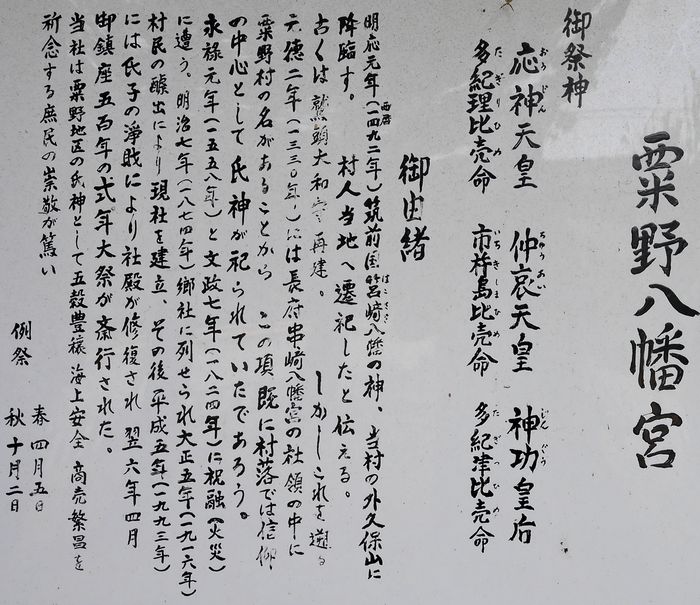 粟野八幡宮
御祭神
おうじん ちゅうあい じんぐう
応神天皇 仲哀天皇 神功皇后
たぎりひめ いちきしまひめ たぎつひめ
多紀理比売命 市杵島比売命 多紀津比売命
御由緒
西暦 はこざき
明応元年(一四九二年)筑前国筥崎八幡の神、当村の外久保山に
降臨す。 村人当地へ遷祀したと伝える。
古くは鷲頭大和守再建。 しかしこれを遡る
元徳二年(一三三〇年)には長府串崎八幡宮の社領の中に
粟野村の名があることから この項既に村落では信仰
の中心として氏神が祀られていたであろう。
永禄元年(一五五八年)と文政七年(一八二四年)に祝融(火災)
に遭う。明治七年(一八七四年)郷社に列せられ大正五年(一九一六年)
村民の醵出により現社を建立、その後平成五年(一九九三年)
には氏子の浄財により社殿が修復され翌六年四月
御鎮座五百年の式年大祭が斎行された。
当社は粟野地区の氏神として五穀豊穣 海上安全 商売繁昌を
祈念する庶民の崇敬が篤い
例祭 春 四月五日
秋 十月二日